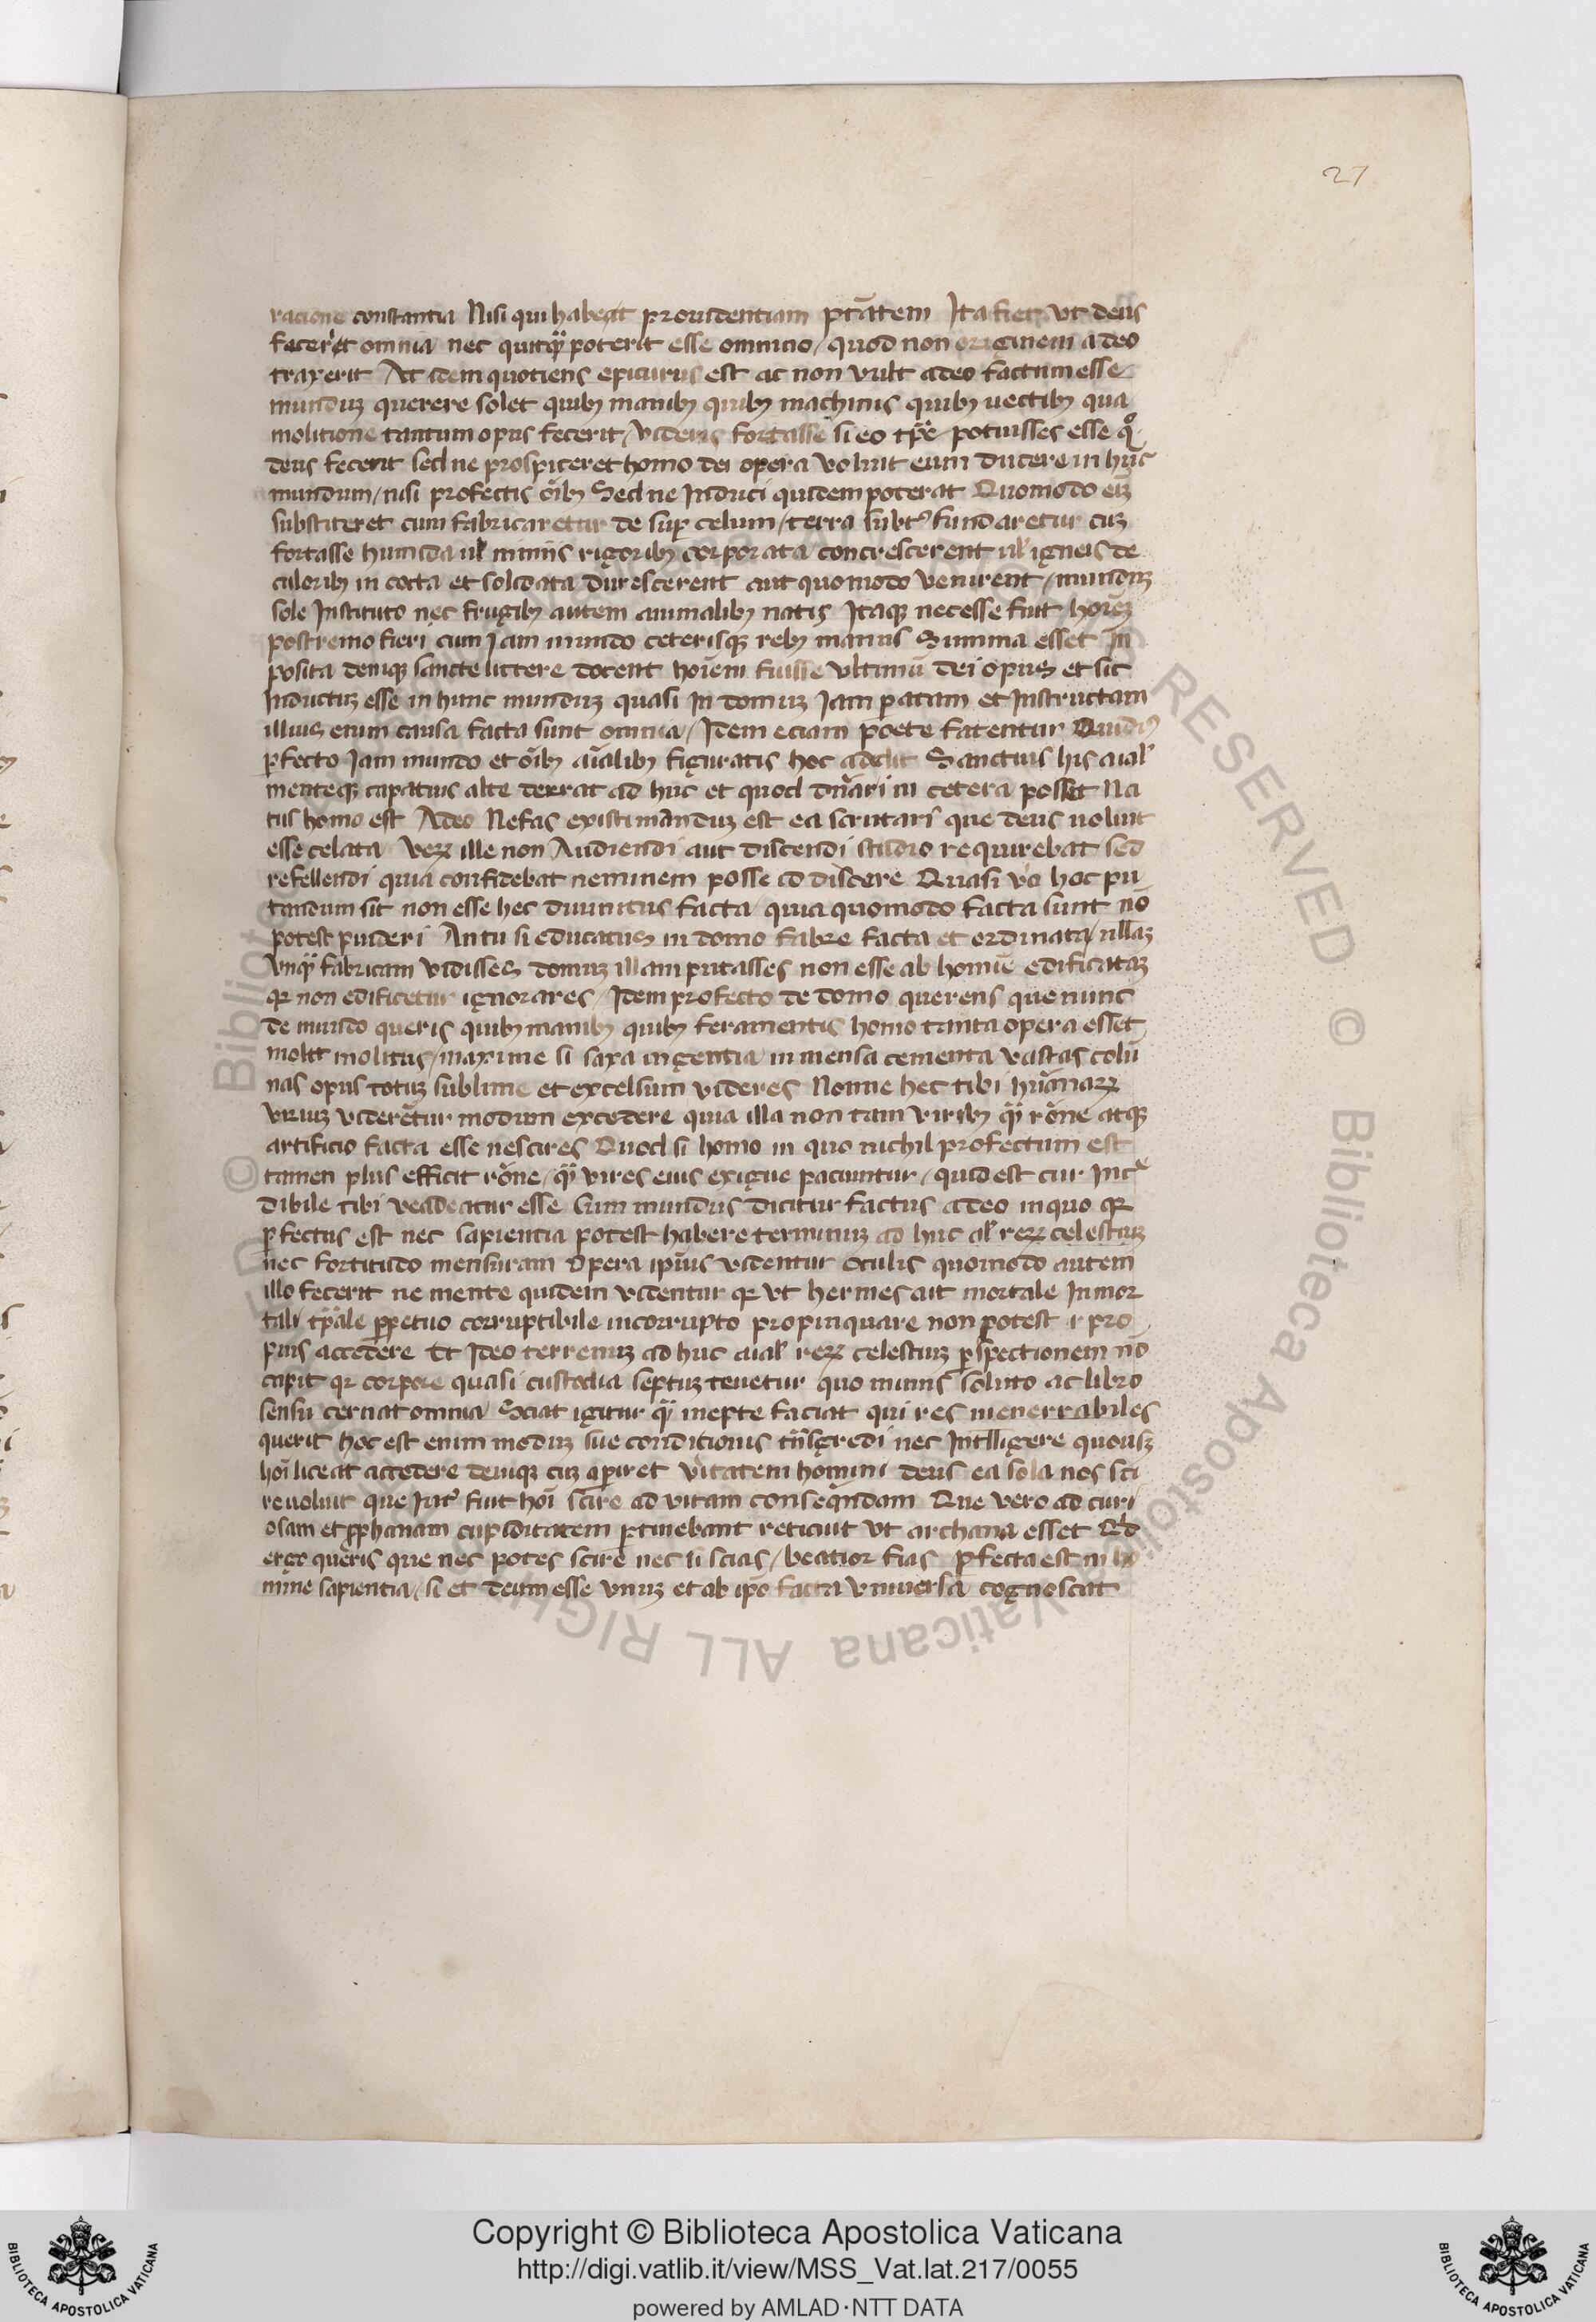 27
racione constantia Nisi qui habeat prouidentiam ptātem Ita fiet vt deus
fecerit omnia nec quitqͣ poterit esse omnino / quod non originem a deo
traxerit At idem quotiens epicurus est ac non vult a deo factum esse
munduꝫ querere solet quibꝫ manibꝫ quibꝫ machinis quibꝫ uectibꝫ qua
molitione tantum opus fecerit / videris fortasse si eo tp̄e potuisses esse qͦ
deus fecerit sed ne prospiceret homo dei opera voluit eum ducere in hūc
mundum / nisi profectis oībꝫ Sed ne Induci quidem poterat Quomodo eīꝫ
substiteret cum fabricaretur de suꝑ celum / terra subtꝰ fundaretur cuꝫ
fortasse humida ul̉ nimiis rigoribꝫ corporata concrescerent ul̉ igneis de
culoribꝫ in cocta et solidata durescerent aut quomodo venirent / munduꝫ
sole Instituto nec frugibꝫ autem animalibꝫ natis Itaqꝫ necesse fuit hoīeꝫ
postremo fieri cum Jam mundo ceterisqꝫ rebꝫ manus Summa esset In
posita deniqꝫ sancte littere docent hoīem fuisse vltimū dei opus et sic
Inductuꝫ esse in hunc munduꝫ quasi In domuꝫ Jam ꝑatam et Instructam
illius enim causa facta sunt omnia / Idem eciam poete fatentur Ouidiꝰ
ꝑfecto Jam mundo et oībꝫ aīalibꝫ figuratis hoc addit Sanctius his aial̉
menteqꝫ capatius alte derrat ad huc et quod dn̄ari in cetera posset Na
tus homo est Adeo Nefas existimanduꝫ est ea scrutari que deus uoluit
esse celata Veꝝ ille non Audiendi aut discendi studio requirebat sed
refellendi quia confidebat neminem posse id discere Quasi vo hoc pu
tandum sit non esse hec diuinitus facta quia quomodo facta sunt nō
potest puideri An tu si educatus in domo fabre facta et ordinata / ullaꝫ
vnqͣ fabricam vidisses domuꝫ illam putasses non esse ab homīe edificataꝫ
qꝛ non edificetur ignorares / Idem profecto de domo querens que nunc
de mundo queris quibꝫ manibꝫ quibꝫ feramentis homo tanta opera esset
molit molitus / maxime si saxa ingentia inmensa cementa vastas colū
nas opus totuꝫ sublime et excelsum videres Nonne hec tibi hūanaꝝ
viriuꝫ viderētur modum excedere quia illa non tam viribꝫ qͣ rōne atqꝫ
artificio facta esse nescires Quod si homo in quo nichil profectum est
tamen plus efficit rōne / qͣ vires eius exigue paciuntur / quid est cur Incͤ
dibile tibi veadeatur esse Cum mundus dicitur factus a deo in quo qꝛ
ꝑfectus est nec sapientia potest habere terminuꝫ ad huc al̉ reꝝ celestiuꝫ
nec fortitudo mensuram Opera ip̄ius videntur oculis quomodo autem
illo fecerit ne mente quidem videntur qꝛ vt hermes ait mortale Inmor
tali tp̄ale ꝑpetuo corruptibile incorrupto propinquare non potest ı pro
pius accedere Et Ideo terrenuꝫ ad huc aial̉ reꝝ celestiuꝫ ꝑspectionem nō
capit qꝛ corpore quasi custodia septuꝫ tenetur quo minus soluto ac libro
sensu cernat omnia Sciat igitur qͣ inepte faciat qui res inenerrabiles
querit hoc est enim moduꝫ sue conditionis tn̄sgredi nec Intlligere quousꝫ
hoī liceat accedere deniqꝫ cuꝫ aꝑiret v̉itatem homini deus ea sola nos sci
re uoluit que Intꝰ fuit hoī scire ad vitam conseqͣndam Que vero ad curi
osam et ꝓphanam cupiditatem ꝑtinebant reticuit vt archana esset Qͥd
ergo queris que nec potes scire nec si scias / beatior fias ꝑfecta est in ho
mine sapientia / si et deum esse vnuꝫ et ab ip̄o facta vniuersa cognoscat
Copyright © Biblioteca Apostolica Vaticana
http://digi.vatlib.it/view/MSS_Vat.lat.217/0055
powered by AMLAD·NTT DATA
BIBLIOTECA APOSTOLICA VATICANA
BIBLIOTECA APOSTOLICA VATICANA